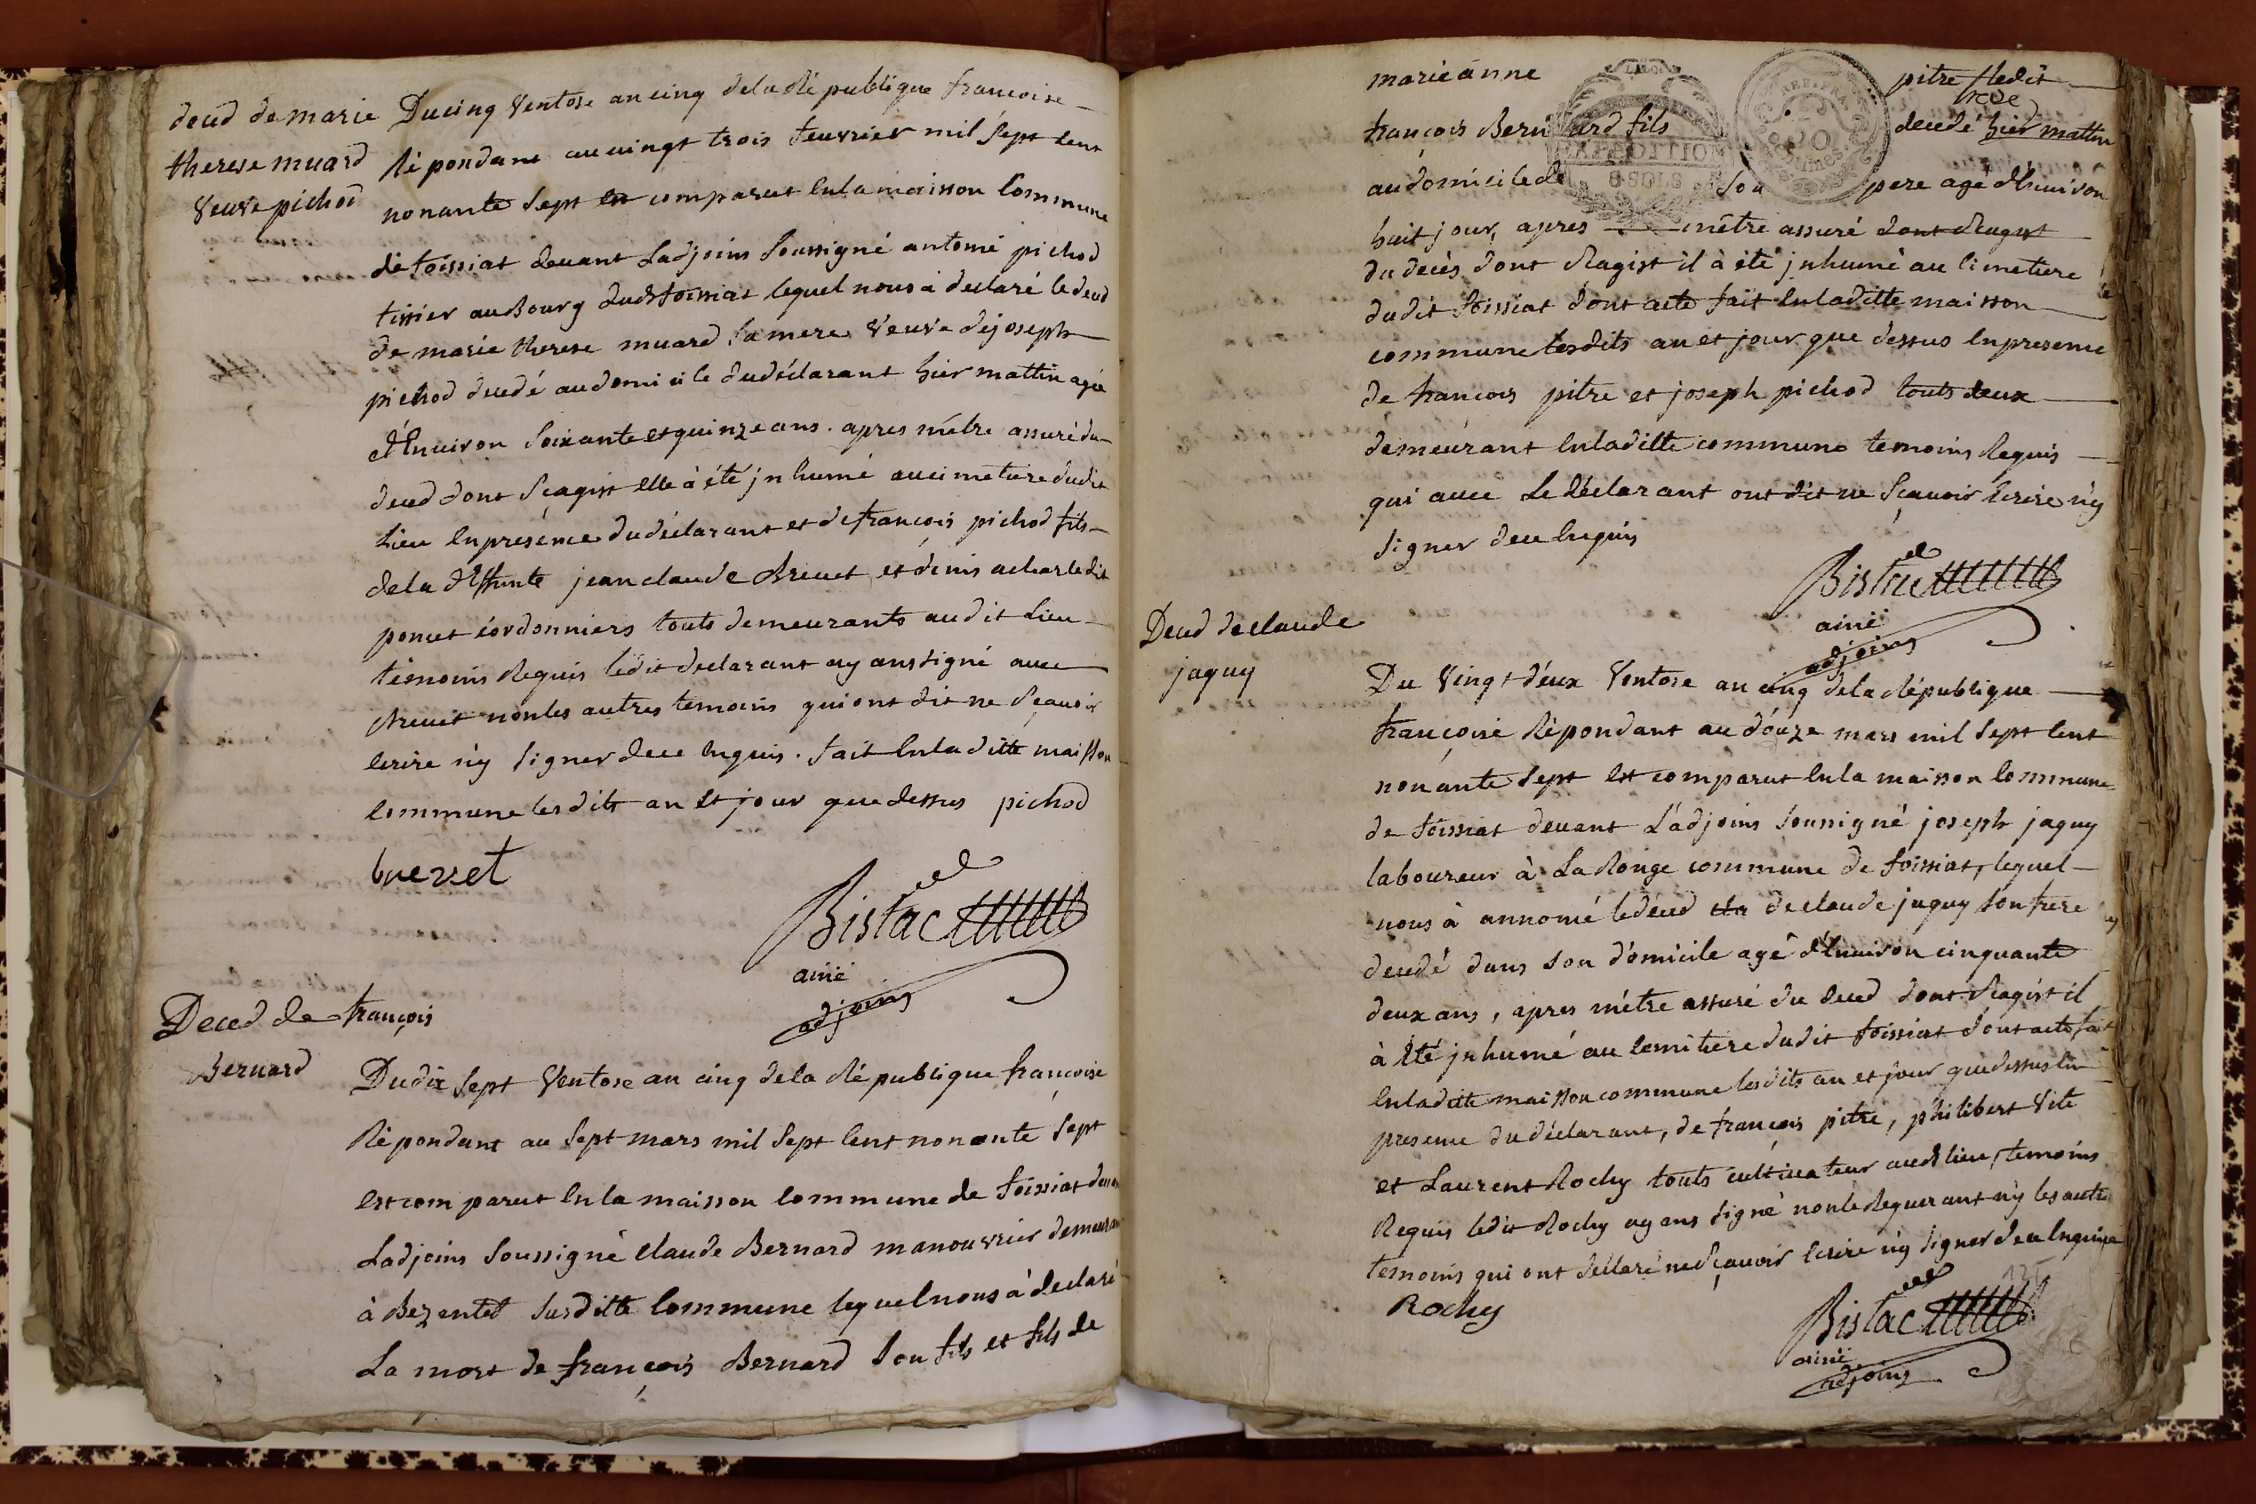 deced de marie
therese muard
Veuve pichod
Du cinq Ventose an cinq de la République francoise
Répondant au vingt trois feuvrier mil Sept Cent
nonante Sept est comparut En la maisson Commune
de foissiat devant Ladjoins Soussigné antoine pichod
tissier au Bourg dudt foissiat lequel nous à declaré le deced
de marie therese muard Sa mere Veuve de joseph
pichod decedé au domicile du déclarant hier mattin agée
d'Environ Soixante et quinze ans. apres m'étre assuré du
deced dont S'eagist elle à été jnhumé au cimetiere dudit
Lieu En présence du déclarant et de francois pichod fils
de la deffunte jean claude Brevet et denis acharle dit
poncet cordonniers touts demeurants audit Lieu
témoins Requis ledit declarant ayans signé avec
Brevet non les autres temoins qui ont dit ne Sçauoir
Ecrire n'y Signer de ce Enquis. fait En la ditte maisson
Commune lesdits an et jour que dessus pichod
brevet
Bistac
ainé
adjoins
Deced de françois
Bernard
Du dix Sept Ventose an cinq de la République françoise
Répondant au Sept mars mil Sept Cent nonante Sept
est comparut En la maisson Commune de foissiat devant
Ladjoins Soussigné Claude Bernard manouvrier demeurant
à Bezentet Susditte Commune lequel nous à declaré
La mort de françois Bernard Son fils et fils de
marie anne pitre ledit
françois Bernard fils decedé hier mattin
au domicile de Son pere agé d'Environ
huit jour, apres m'être assuré dont S'eagist
du decès dont S'eagist il à été jnhumé au Cimetiere
dudit foissiat dont acte fait En laditte maisson
commune lesdits an et jour que dessus En presence
de francois pitre et joseph pichod touts deux
demeurant En laditte commune temoins Requis
qui avec Le déclarant ont dit ne Sçauoir Ecrire n'y
Signer de ce Enquis
Bistac
ainé
adjoins
Deced de claude
jaquy
Du Vingt deux Ventose an cinq de la République
françoise Répondant au douze mars mil Sept Cent
nonante Sept Est comparut En la maisson Commune
de foissiat devant L'adjoins Soussigné joseph jaquy
laboureur à La Ronge commune de foissiat, lequel
nous à annoncé le deced de claude jaquy Son frere
decedé dans Son domicile agé d'Environ cinquante
deux ans, apres m'étre assuré du deced dont S'eagist il
à Eté jnhumé au Cemitiere dudit foissiat dont acte fait
En laditte maisson commune lesdits an et jour que dessus En
presence du déclarant, de françois pitre, philibert Vite
et Laurent Rochy touts cultivateur audt lieu, temoins
Requis ledit Rochy ayans Signé non le Requerant n'y les autres
temoins qui ont declaré ne Sçauoir Ecrire n'y Signer de ce Enquis
Rochy
Bistac
ainé
adjoins